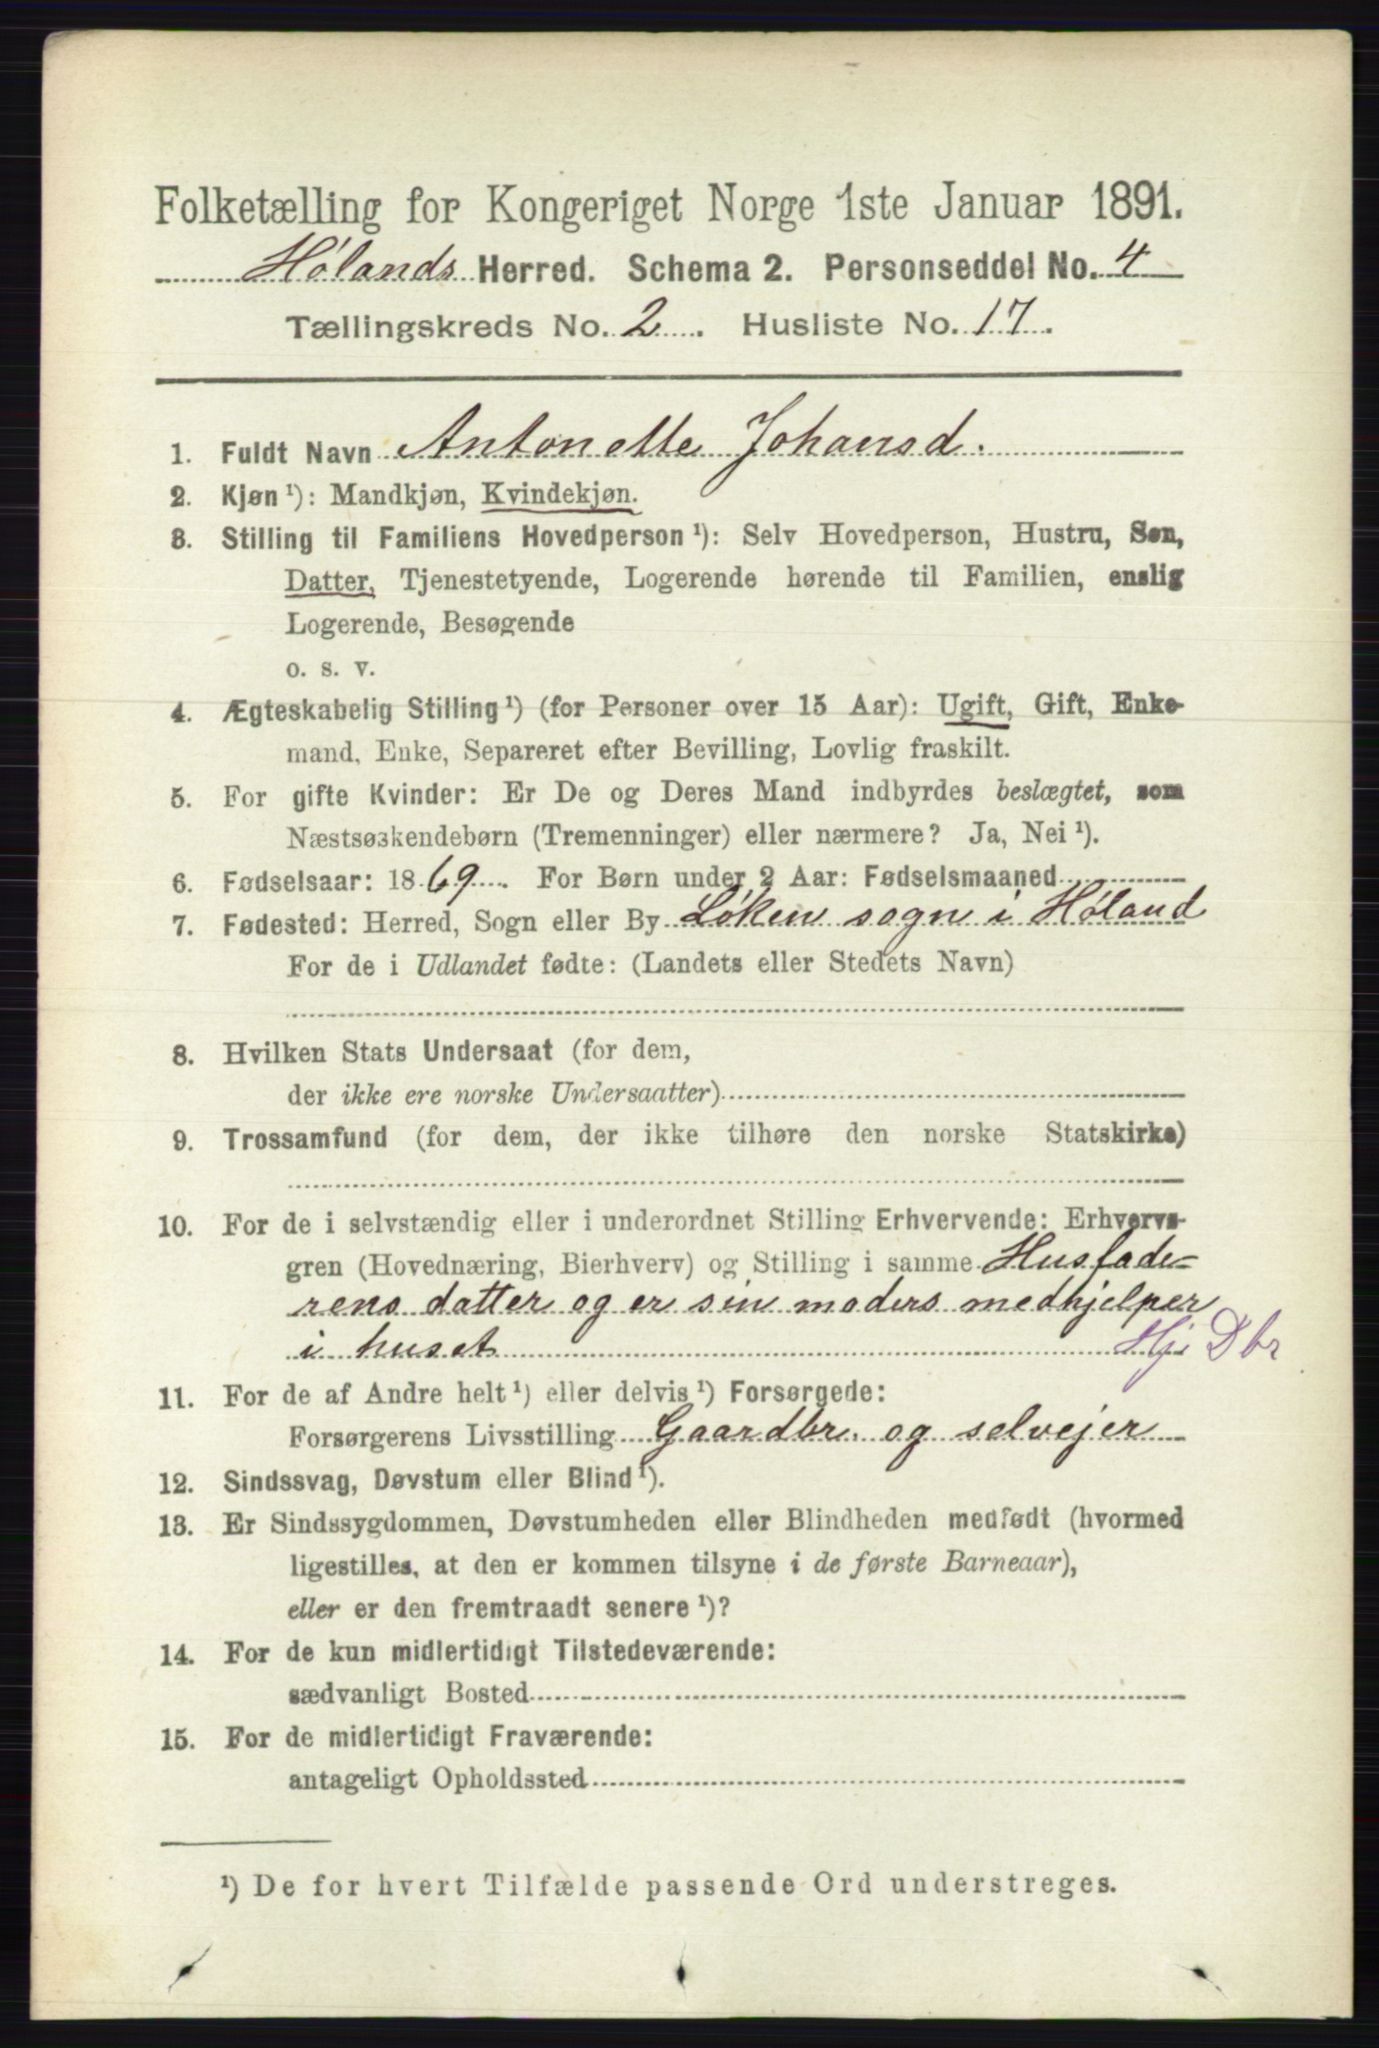 Folketælling for Kongeriget Norge 1ste Januar 1891.
Hølands Herred. Schema 2. Personseddel No. 4
Tællingskreds No. 2. Husliste No. 17.
1. Fuldt Navn Antonette Johansd.
2. Kjøn ¹): Mandkjøn, Kvindekjøn.
3. Stilling til Familiens Hovedperson ¹): Selv Hovedperson, Hustru, Søn,
Datter, Tjenestetyende, Logerende hørende til Familien, enslig
Logerende, Besøgende
o. s. v.
4. Ægteskabelig Stilling ¹) (for Personer over 15 Aar): Ugift, Gift, Enke-
mand, Enke, Separeret efter Bevilling, Lovlig fraskilt.
5. For gifte Kvinder: Er De og Deres Mand indbyrdes beslægtet, som
Næstsøskendebørn (Tremenninger) eller nærmere? Ja, Nei ¹).
6. Fødselsaar: 1869. For Børn under 2 Aar: Fødselsmaaned
7. Fødested: Herred, Sogn eller By Løken sogn i Høland
For de i Udlandet fødte: (Landets eller Stedets Navn)
8. Hvilken Stats Undersaat (for dem,
der ikke ere norske Undersaatter)
9. Trossamfund (for dem, der ikke tilhøre den norske Statskirke)
10. For de i selvstændig eller i underordnet Stilling Erhvervende: Erhvervs-
gren (Hovednæring, Bierhverv) og Stilling i samme Husfade-
rens datter og er sin moders medhjelper
i huset Hj. Dbr
11. For de af Andre helt ¹) eller delvis ¹) Forsørgede:
Forsørgerens Livsstilling Gaardbr. og selvejer
12. Sindssvag, Døvstum eller Blind ¹).
13. Er Sindssygdommen, Døvstumheden eller Blindheden medfødt (hvormed
ligestilles, at den er kommen tilsyne i de første Barneaar),
eller er den fremtraadt senere ¹)?
14. For de kun midlertidigt Tilstedeværende:
sædvanligt Bosted
15. For de midlertidigt Fraværende:
antageligt Opholdssted
¹) De for hvert Tilfælde passende Ord understreges.